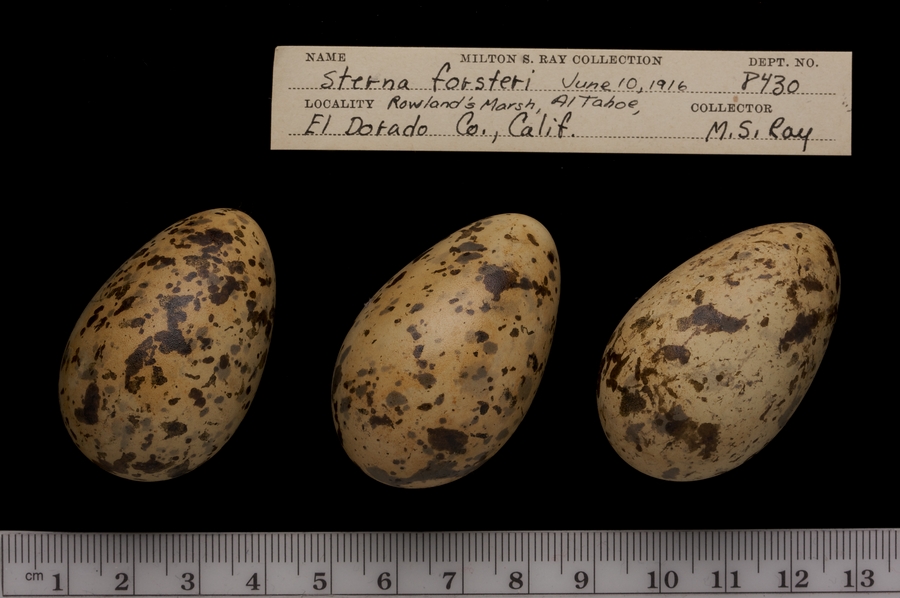 NAME MILTON S. RAY COLLECTION DEPT. NO.
Sterna forsteri June 10, 1916 8430
LOCALITY Rowland's Marsh, Al Tahoe, COLLECTOR
El Dorado Co., Calif. M.S. Ray
cm 1 2 3 4 5 6 7 8 9 10 11 12 13